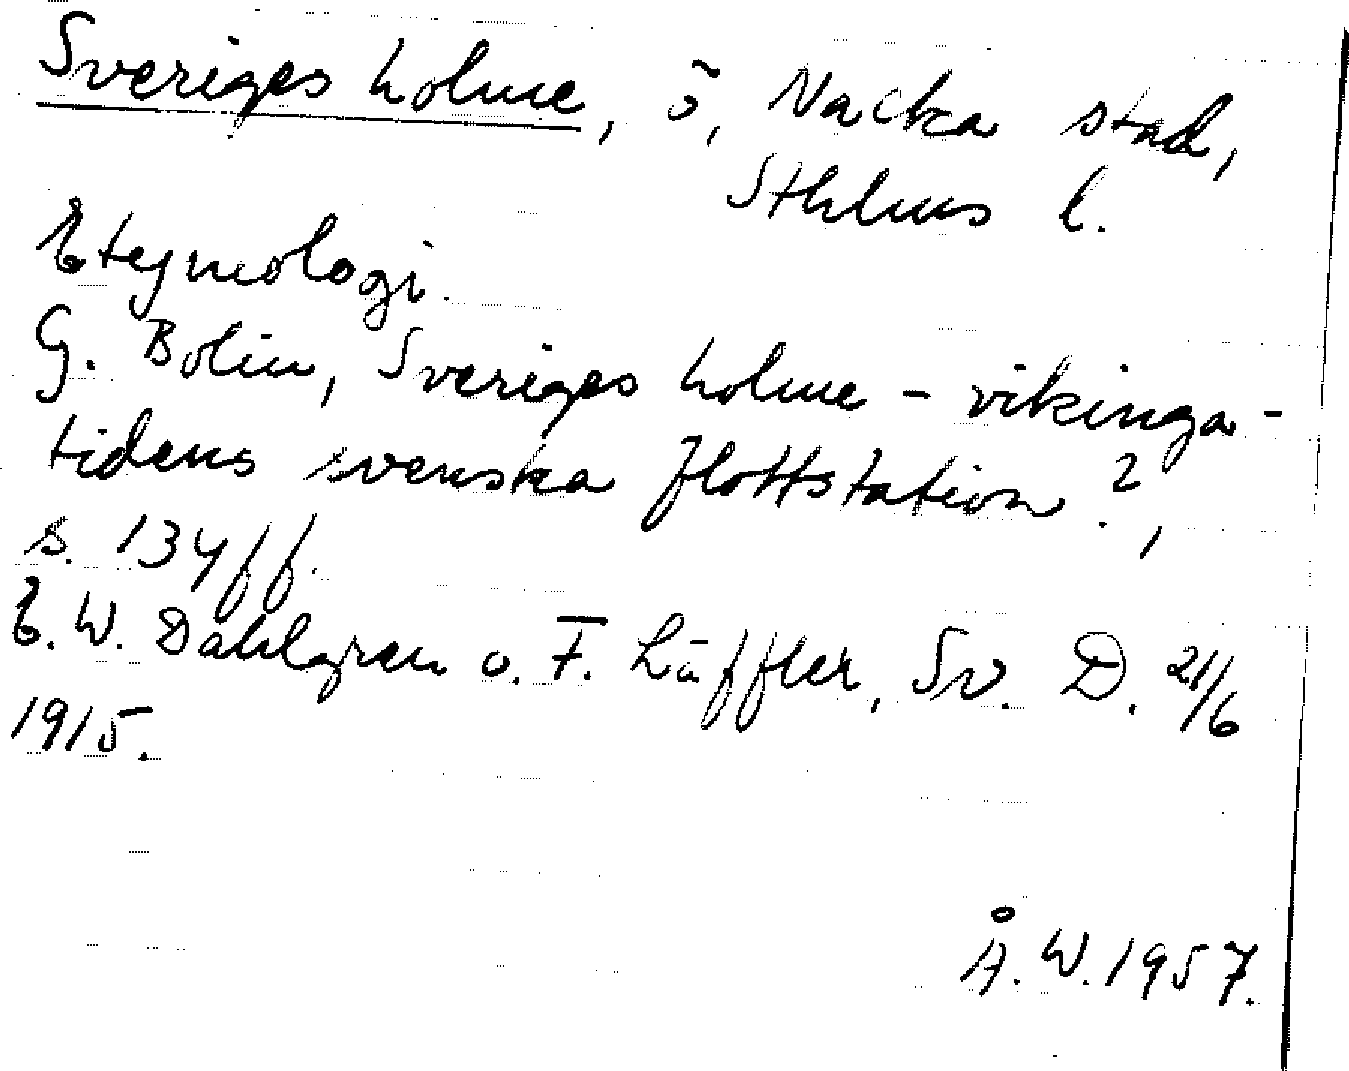 Sveriges holme, ö, Nacka stad,
Sthlms l.
Etymologi.
G. Bolin, Sveriges holme - vikinga-
tidens svenska flottstation?,
s. 134ff.
E. W. Dahlgren o. F. Läffler, Sv. D. 21/6
1915.
Å. W. 1957.